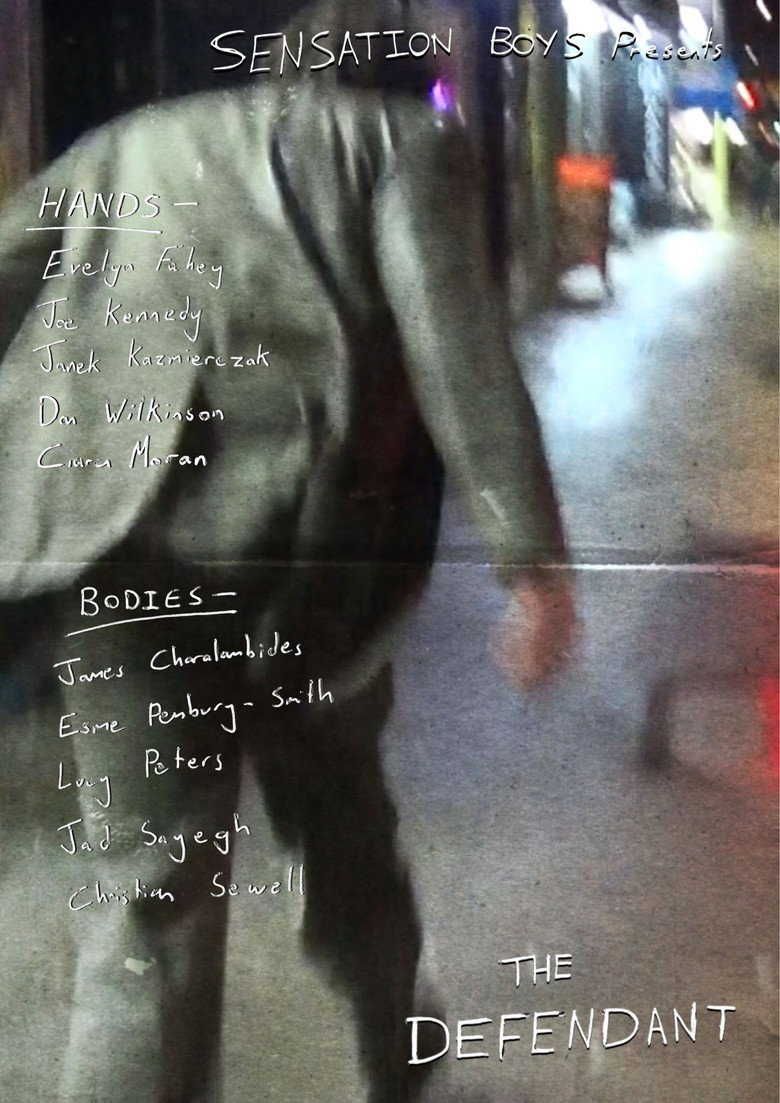 SENSATION BOYS Presents
HANDS –
Evelyn Fahey
Joe Kennedy
Janek Kazmierczak
Dan Wilkinson
Ciara Moran
BODIES –
James Charalambides
Esme Penbury-Smith
Lucy Peters
Jad Sayegh
Christian Sewell
THE
DEFENDANT